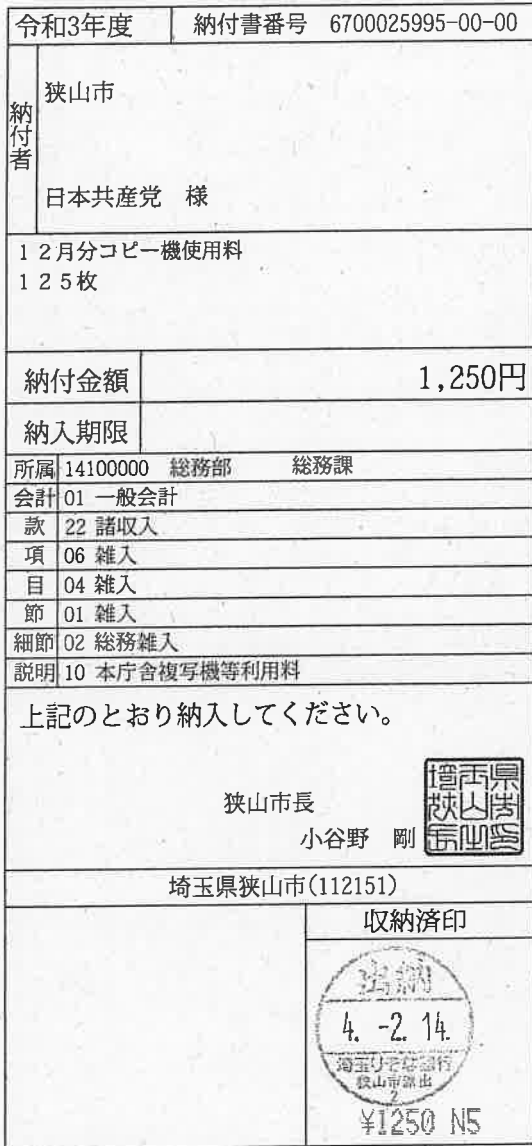 令和3年度 納付書番号 6700025995-00-00
納付者
狭山市
日本共産党 様
12月分コピー機使用料
125枚
納付金額 1,250円
納入期限
所属 14100000 総務部 総務課
会計 01 一般会計
款 22 諸収入
項 06 雑入
目 04 雑入
節 01 雑入
細節 02 総務雑入
説明 10 本庁舎複写機等利用料
上記のとおり納入してください。
狭山市長
小谷野 剛
埼玉県狭山市長之印
埼玉県狭山市(112151)
収納済印
出納
4. -2. 14.
埼玉りそな銀行
狭山市派出
2
¥1250 N5